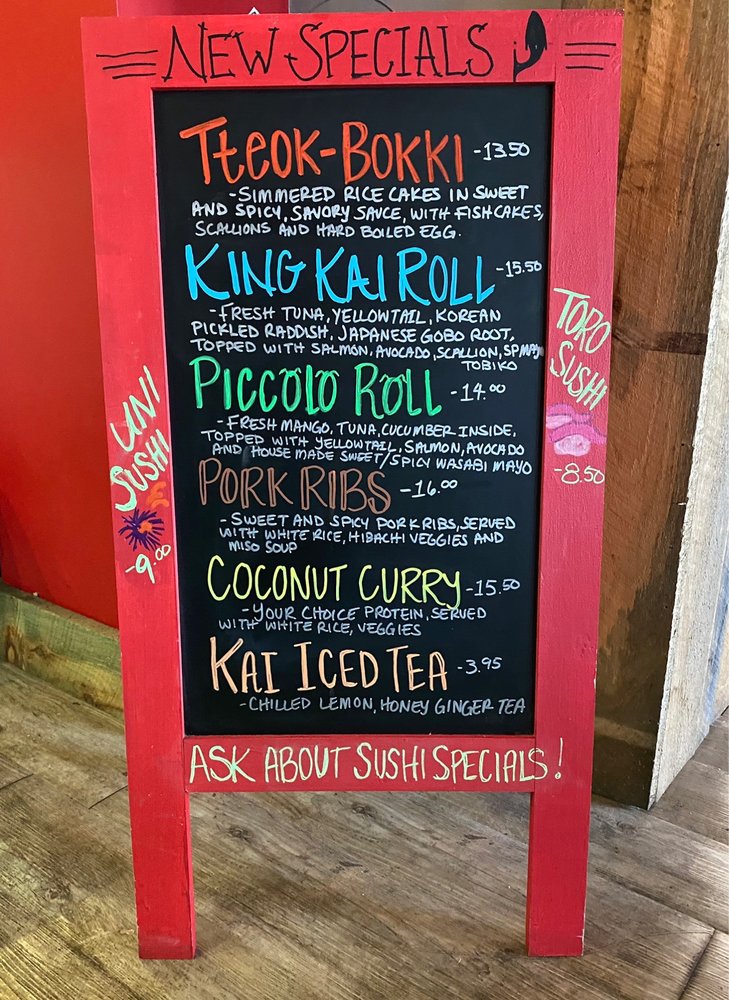 NEW SPECIALS
TTEOK-BOKKI -13.50
-SIMMERED RICE CAKES IN SWEET
AND SPICY, SAVORY SAUCE, WITH FISHCAKES,
SCALLIONS AND HARD BOILED EGG.
KING KAI ROLL -15.50
-FRESH TUNA, YELLOWTAIL, KOREAN
PICKLED RADDISH, JAPANESE GOBO ROOT,
TOPPED WITH SALMON, AVOCADO, SCALLION, SPMAYO
TOBIKO
PICCOLO ROLL -14.00
-FRESH MANGO, TUNA, CUCUMBER INSIDE,
TOPPED WITH YELLOWTAIL, SALMON, AVOCADO
AND HOUSE MADE SWEET/SPICY WASABI MAYO
PORK RIBS -16.00
-SWEET AND SPICY PORK RIBS, SERVED
WITH WHITE RICE, HIBACHI VEGGIES AND
MISO SOUP
COCONUT CURRY -15.50
-YOUR CHOICE PROTEIN, SERVED
WITH WHITE RICE, VEGGIES
KAI ICED TEA -3.95
-CHILLED LEMON, HONEY GINGER TEA
ASK ABOUT SUSHI SPECIALS!
UNI
SUSHI
-9.00
TORO
SUSHI
-8.50